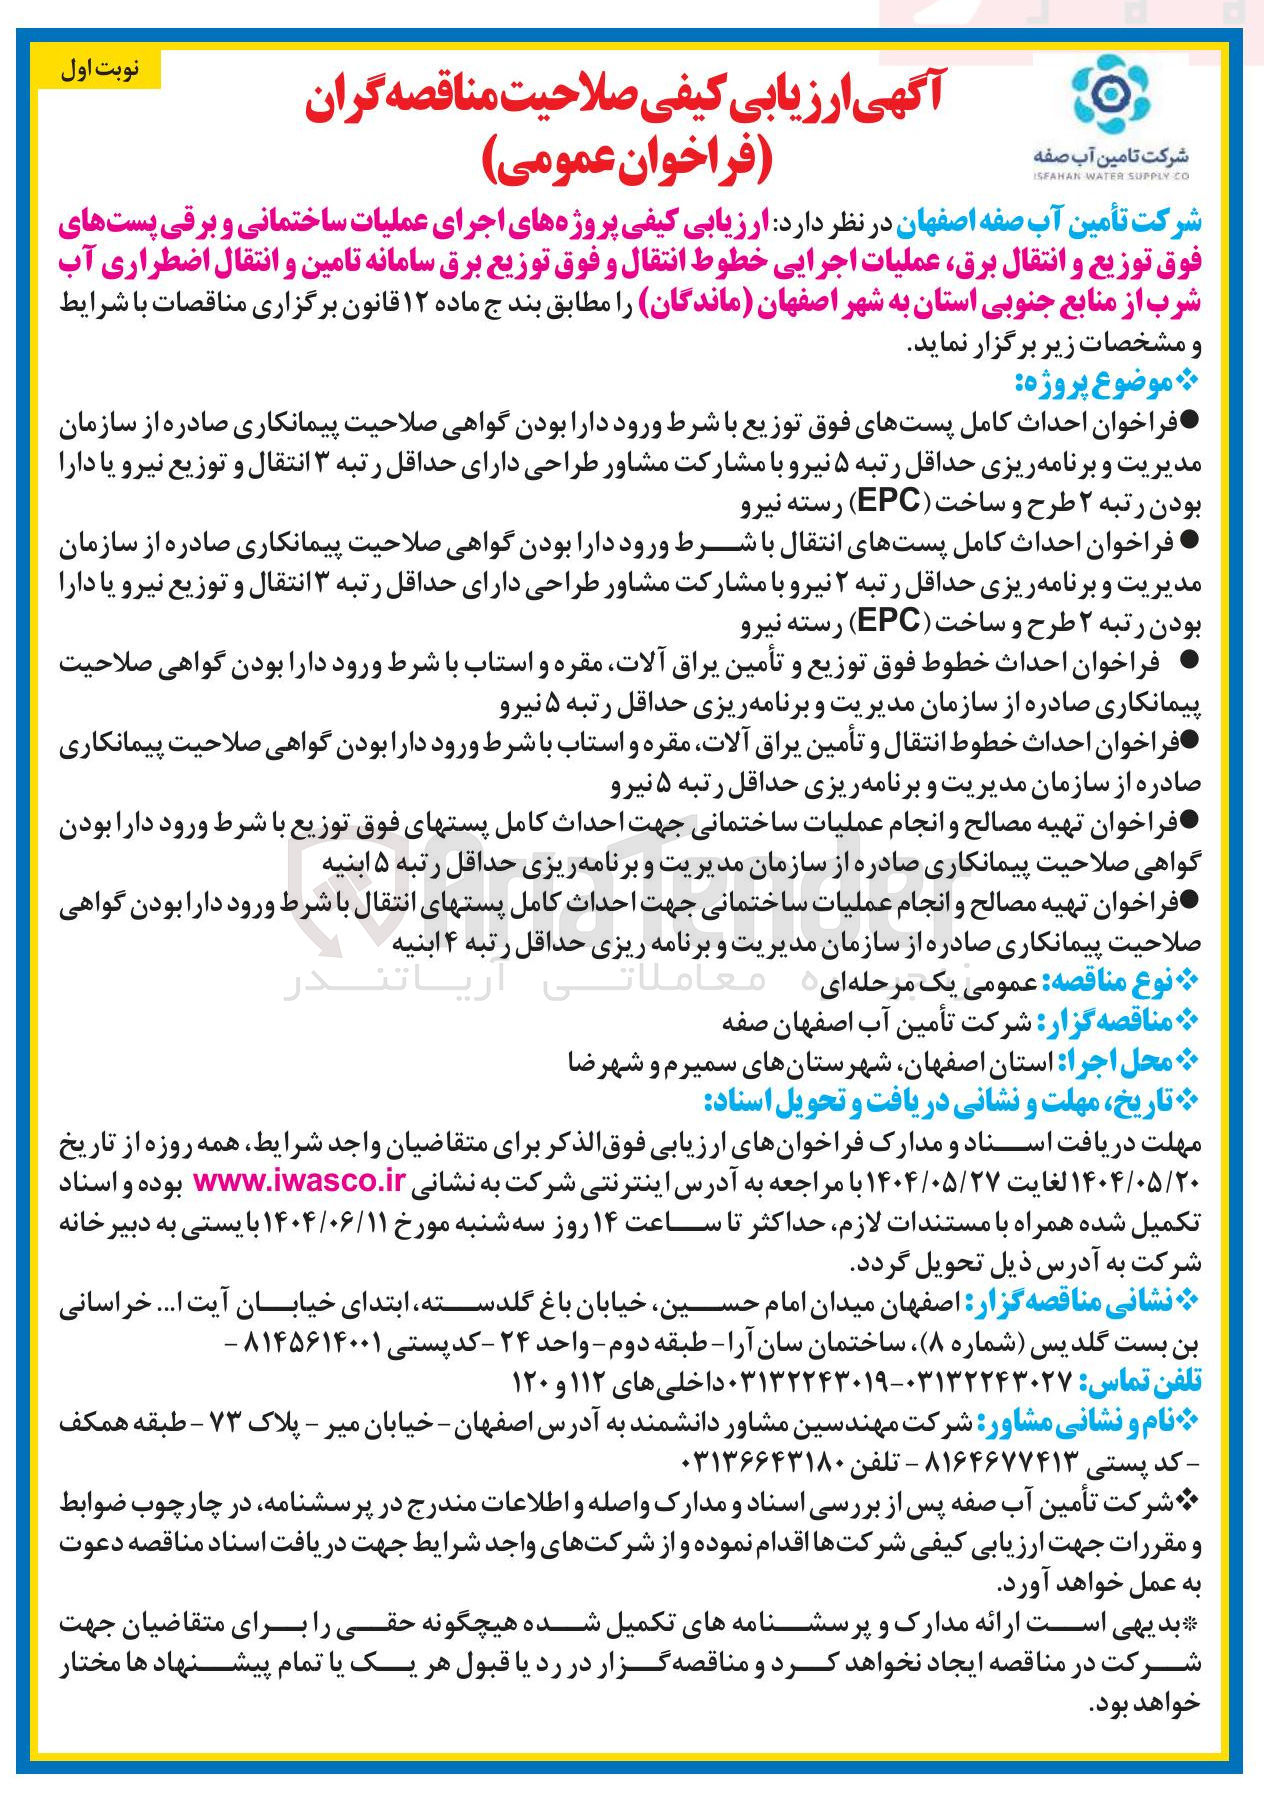 نوبت اول
آگهی ارزیابی کیفی صلاحیت مناقصه‌گران
(فراخوان عمومی)
شرکت تامین آب صفه
ISFAHAN WATER SUPPLY CO
شرکت تأمین آب صفه اصفهان در نظر دارد: ارزیابی کیفی پروژه‌های اجرای عملیات ساختمانی و برقی پست‌های
فوق توزیع و انتقال برق، عملیات اجرایی خطوط انتقال و فوق توزیع برق سامانه تامین و انتقال اضطراری آب
شرب از منابع جنوبی استان به شهر اصفهان (ماندگان) را مطابق بند ج ماده ۱۲ قانون برگزاری مناقصات با شرایط
و مشخصات زیر برگزار نماید.
❖موضوع پروژه:
●فراخوان احداث کامل پست‌های فوق توزیع با شرط ورود دارا بودن گواهی صلاحیت پیمانکاری صادره از سازمان
مدیریت و برنامه‌ریزی حداقل رتبه ۵ نیرو با مشارکت مشاور طراحی دارای حداقل رتبه ۳ انتقال و توزیع نیرو یا دارا
بودن رتبه ۲ طرح و ساخت (EPC) رسته نیرو
● فراخوان احداث کامل پست‌های انتقال با شرط ورود دارا بودن گواهی صلاحیت پیمانکاری صادره از سازمان
مدیریت و برنامه‌ریزی حداقل رتبه ۲ نیرو با مشارکت مشاور طراحی دارای حداقل رتبه ۳ انتقال و توزیع نیرو یا دارا
بودن رتبه ۲ طرح و ساخت (EPC) رسته نیرو
● فراخوان احداث خطوط فوق توزیع و تأمین یراق آلات، مقره و استاب با شرط ورود دارا بودن گواهی صلاحیت
پیمانکاری صادره از سازمان مدیریت و برنامه‌ریزی حداقل رتبه ۵ نیرو
●فراخوان احداث خطوط انتقال و تأمین یراق آلات، مقره و استاب با شرط ورود دارا بودن گواهی صلاحیت پیمانکاری
صادره از سازمان مدیریت و برنامه‌ریزی حداقل رتبه ۵ نیرو
●فراخوان تهیه مصالح و انجام عملیات ساختمانی جهت احداث کامل پستهای فوق توزیع با شرط ورود دارا بودن
گواهی صلاحیت پیمانکاری صادره از سازمان مدیریت و برنامه‌ریزی حداقل رتبه ۵ ابنیه
●فراخوان تهیه مصالح و انجام عملیات ساختمانی جهت احداث کامل پستهای انتقال با شرط ورود دارا بودن گواهی
صلاحیت پیمانکاری صادره از سازمان مدیریت و برنامه ریزی حداقل رتبه ۴ ابنیه
AriaTender
زنجیره معاملاتی آریاتندر
❖نوع مناقصه: عمومی یک مرحله‌ای
❖مناقصه‌گزار: شرکت تأمین آب اصفهان صفه
❖محل اجرا: استان اصفهان، شهرستان‌های سمیرم و شهرضا
❖تاریخ، مهلت و نشانی دریافت و تحویل اسناد:
مهلت دریافت اسناد و مدارک فراخوان‌های ارزیابی فوق‌الذکر برای متقاضیان واجد شرایط، همه روزه از تاریخ
۱۴۰۴/۰۵/۲۰ لغایت ۱۴۰۴/۰۵/۲۷ با مراجعه به آدرس اینترنتی شرکت به نشانی www.iwasco.ir بوده و اسناد
تکمیل شده همراه با مستندات لازم، حداکثر تا ساعت ۱۴ روز سه‌شنبه مورخ ۱۴۰۴/۰۶/۱۱ بایستی به دبیرخانه
شرکت به آدرس ذیل تحویل گردد.
❖نشانی مناقصه‌گزار: اصفهان میدان امام حسین، خیابان باغ گلدسته، ابتدای خیابان آیت ا... خراسانی
بن بست گلدیس (شماره ۸)، ساختمان سان آرا - طبقه دوم - واحد ۲۴ - کدپستی ۸۱۴۵۶۱۴۰۰۱ -
تلفن تماس: ۰۳۱۳۲۲۴۳۰۲۷-۰۳۱۳۲۲۴۳۰۱۹ داخلی‌های ۱۱۲ و ۱۲۰
❖نام و نشانی مشاور: شرکت مهندسین مشاور دانشمند به آدرس اصفهان - خیابان میر - پلاک ۷۳ - طبقه همکف
- کد پستی ۸۱۶۴۶۷۷۴۱۳ - تلفن ۰۳۱۳۶۶۴۳۱۸۰
❖شرکت تأمین آب صفه پس از بررسی اسناد و مدارک واصله و اطلاعات مندرج در پرسشنامه، در چارچوب ضوابط
و مقررات جهت ارزیابی کیفی شرکت‌ها اقدام نموده و از شرکت‌های واجد شرایط جهت دریافت اسناد مناقصه دعوت
به عمل خواهد آورد.
*بدیهی است ارائه مدارک و پرسشنامه های تکمیل شده هیچگونه حقی را برای متقاضیان جهت
شرکت در مناقصه ایجاد نخواهد کرد و مناقصه‌گزار در رد یا قبول هر یک یا تمام پیشنهاد ها مختار
خواهد بود.